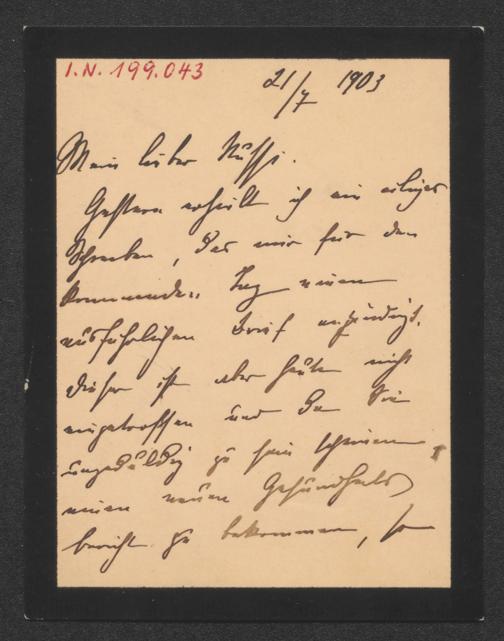 I.N. 199.043
21/7 1903
Mein lieber Nussi.
Gestern erhielt ich ein eiliges
Schreiben, das mir für den
kommenden Tag einen
ausführlichen Brief ankündigt.
Dieser ist aber heute nicht
eingetroffen und da Sie
ungeduldig zu sein scheinen
einen neuen Gesundheits
bericht zu bekommen, so